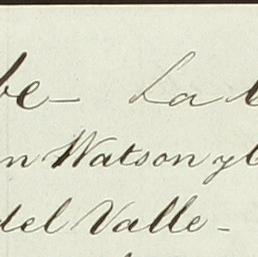 be— La
n Watson y
del Valle -